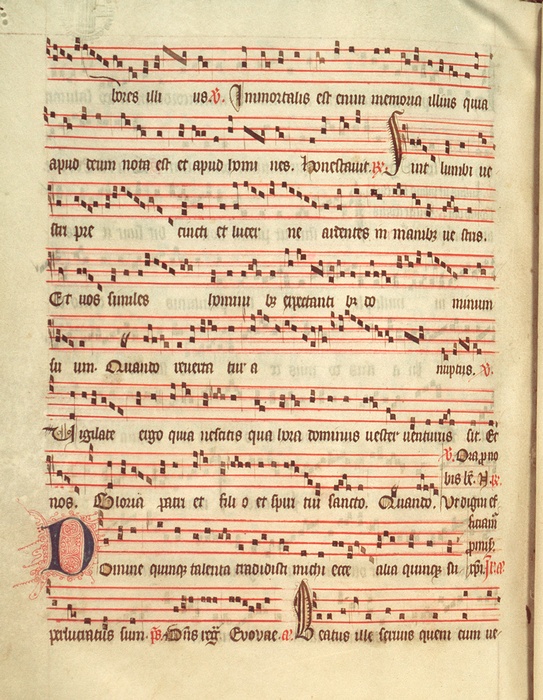 bores illi us. V. Immortalis est enim memoria illius quia
apud deum nota est et apud homi nes. Honestauit. R. Sint lumbi ve
stri pre cincti et lucer ne ardentes in manibz ve stris.
Et vos similes homini bz expectanti bz do minum
su um. Quando reverta tur a nuptiis. V.
Vigilate ergo quia nescitis qua hora dominus vester venturus sit. Et
V. Ora p no
bis be.
nos. Gloria patri et fili o et spiri tui sancto. Quando. Vt digni ef
ficiam
Domine quinqz talenta tradidisti michi ecce alia quinqz su
perlucratus sum. ps. Dns reg. Evovae. a. Beatus ille seruus quem cum ve